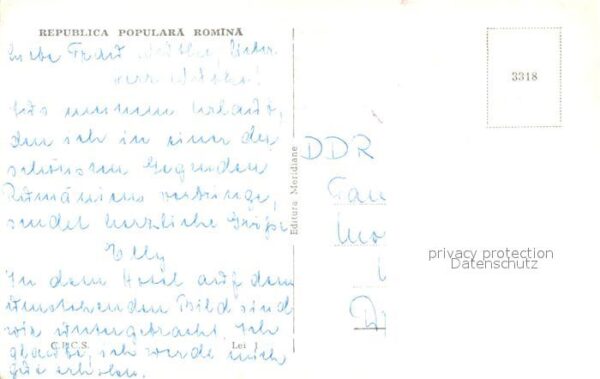 REPUBLICA POPULARĂ ROMÎNĂ
Liebe Frau
lieber
3318
Aus meinem Urlaub,
den ich in einer der
schönsten Gegenden
Rumäniens verbringe,
sendet herzliche Grüße
Elly
In dem Hotel auf dem
umstehenden Bild sind
wir untergebracht. Ich
glaube, ich werde mich
gut erholen.
C.P.C.S. Lei 1
Editura Meridiane
DDR
privacy protection
Datenschutz